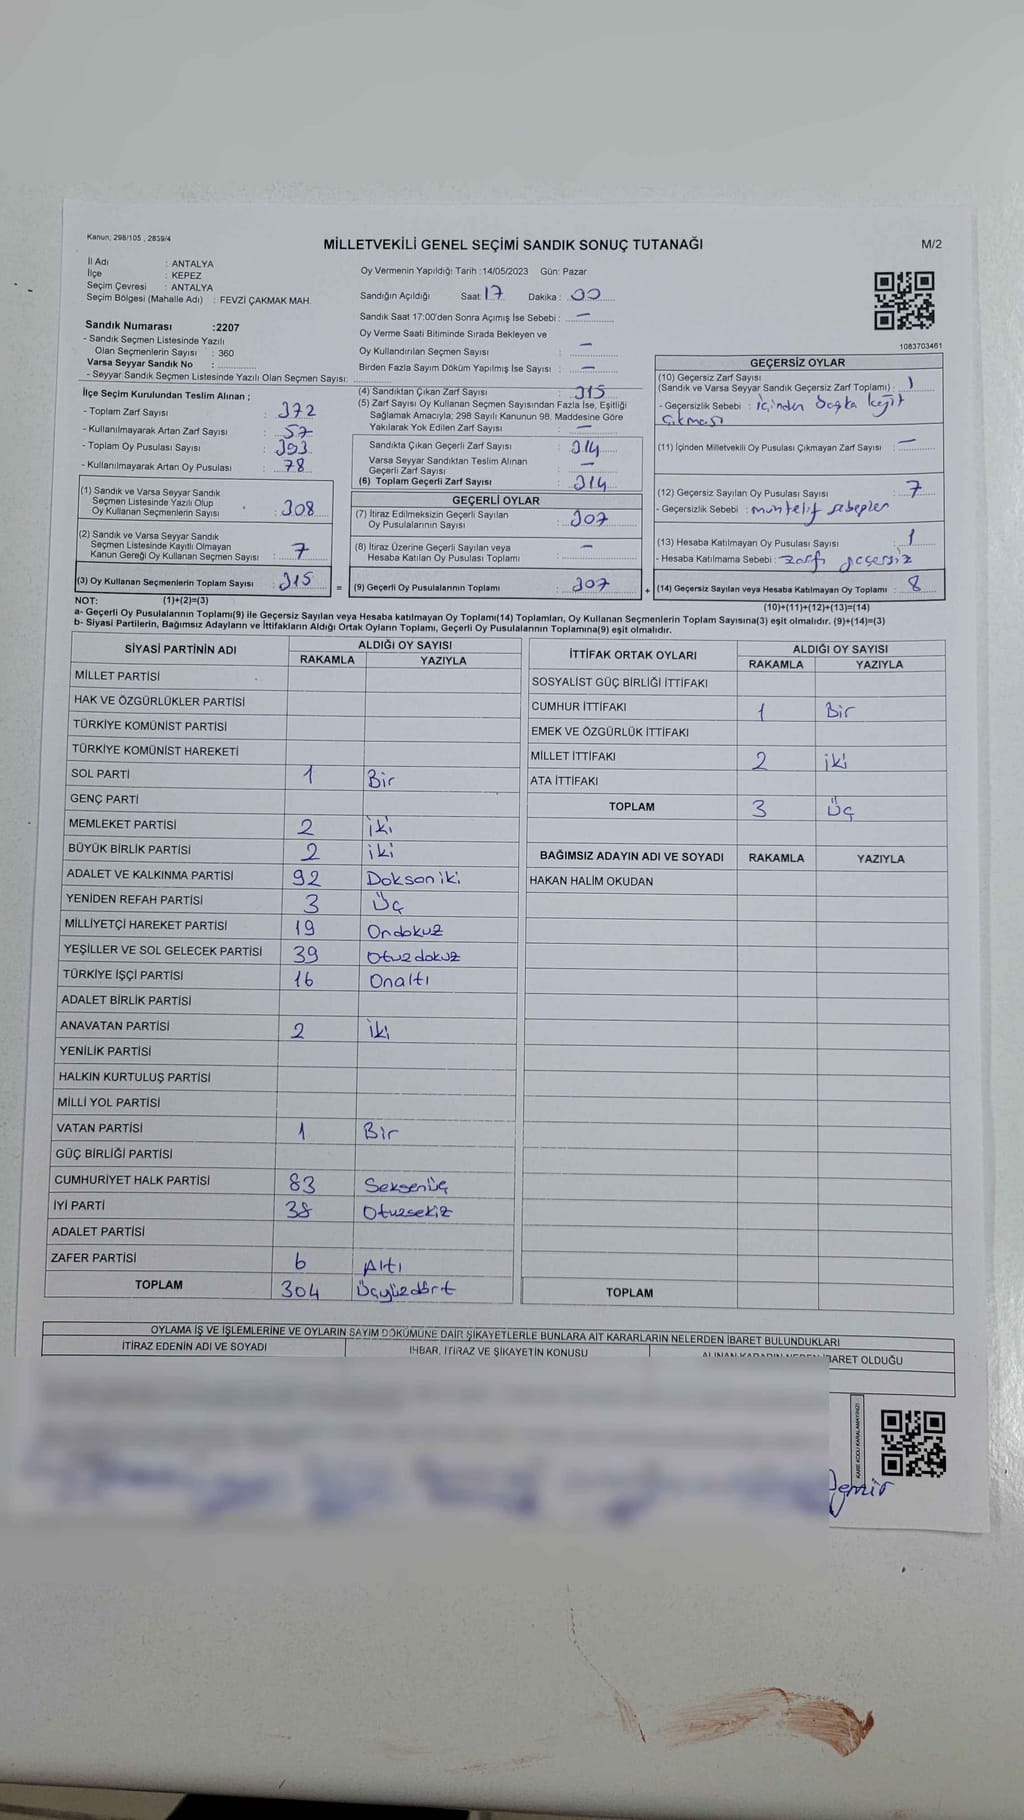 Kanun; 298/105 , 2839/4
MİLLETVEKİLİ GENEL SEÇİMİ SANDIK SONUÇ TUTANAĞI
M/2
İl Adı : ANTALYA
İlçe : KEPEZ
Seçim Çevresi : ANTALYA
Seçim Bölgesi (Mahalle Adı) : FEVZİ ÇAKMAK MAH.
Sandık Numarası :2207
- Sandık Seçmen Listesinde Yazılı
Olan Seçmenlerin Sayısı : 360
Varsa Seyyar Sandık No :
- Seyyar Sandık Seçmen Listesinde Yazılı Olan Seçmen Sayısı:
Oy Vermenin Yapıldığı Tarih :14/05/2023 Gün: Pazar
Sandığın Açıldığı Saat: 17 Dakika : 00
Sandık Saat 17:00'den Sonra Açımış İse Sebebi : —
Oy Verme Saati Bitiminde Sırada Bekleyen ve
Oy Kullandırılan Seçmen Sayısı : —
Birden Fazla Sayım Döküm Yapılmış İse Sayısı : —
1083703461
İlçe Seçim Kurulundan Teslim Alınan ;
- Toplam Zarf Sayısı : 372
- Kullanılmayarak Artan Zarf Sayısı : 57
- Toplam Oy Pusulası Sayısı : 393
- Kullanılmayarak Artan Oy Pusulası : 78
(1) Sandık ve Varsa Seyyar Sandık
Seçmen Listesinde Yazılı Olup
Oy Kullanan Seçmenlerin Sayısı : 308
(2) Sandık ve Varsa Seyyar Sandık
Seçmen Listesinde Kayıtlı Olmayan
Kanun Gereği Oy Kullanan Seçmen Sayısı : 7
(3) Oy Kullanan Seçmenlerin Toplam Sayısı : 315 =
(4) Sandıktan Çıkan Zarf Sayısı : 315
(5) Zarf Sayısı Oy Kullanan Seçmen Sayısından Fazla İse, Eşitliği
Sağlamak Amacıyla; 298 Sayılı Kanunun 98. Maddesine Göre
Yakılarak Yok Edilen Zarf Sayısı : —
Sandıkta Çıkan Geçerli Zarf Sayısı : 314
Varsa Seyyar Sandıktan Teslim Alınan
Geçerli Zarf Sayısı : —
(6) Toplam Geçerli Zarf Sayısı : 314
GEÇERLİ OYLAR
(7) İtiraz Edilmeksizin Geçerli Sayılan
Oy Pusulalarının Sayısı : 307
(8) İtiraz Üzerine Geçerli Sayılan veya
Hesaba Katılan Oy Pusulası Toplamı : —
(9) Geçerli Oy Pusulalarının Toplamı : 307 +
GEÇERSİZ OYLAR
(10) Geçersiz Zarf Sayısı
(Sandık ve Varsa Seyyar Sandık Geçersiz Zarf Toplamı) : 1
- Geçersizlik Sebebi : içinden başka kağıt
çıkması
(11) İçinden Milletvekili Oy Pusulası Çıkmayan Zarf Sayısı : —
(12) Geçersiz Sayılan Oy Pusulası Sayısı : 7
- Geçersizlik Sebebi : muhtelif sebepler
(13) Hesaba Katılmayan Oy Pusulası Sayısı : 1
- Hesaba Katılmama Sebebi : zarfı geçersiz
(14) Geçersiz Sayılan veya Hesaba Katılmayan Oy Toplamı : 8
NOT: (1)+(2)=(3)
(10)+(11)+(12)+(13)=(14)
a- Geçerli Oy Pusulalarının Toplamı(9) ile Geçersiz Sayılan veya Hesaba katılmayan Oy Toplamı(14) Toplamları, Oy Kullanan Seçmenlerin Toplam Sayısına(3) eşit olmalıdır. (9)+(14)=(3)
b- Siyasi Partilerin, Bağımsız Adayların ve İttifakların Aldığı Ortak Oyların Toplamı, Geçerli Oy Pusulalarının Toplamına(9) eşit olmalıdır.
SİYASİ PARTİNİN ADI ALDIĞI OY SAYISI
RAKAMLA YAZIYLA
MİLLET PARTİSİ
HAK VE ÖZGÜRLÜKLER PARTİSİ
TÜRKİYE KOMÜNİST PARTİSİ
TÜRKİYE KOMÜNİST HAREKETİ
SOL PARTİ 1 Bir
GENÇ PARTİ
MEMLEKET PARTİSİ 2 iki
BÜYÜK BİRLİK PARTİSİ 2 iki
ADALET VE KALKINMA PARTİSİ 92 Doksan iki
YENİDEN REFAH PARTİSİ 3 Üç
MİLLİYETÇİ HAREKET PARTİSİ 19 Ondokuz
YEŞİLLER VE SOL GELECEK PARTİSİ 39 Otuzdokuz
TÜRKİYE İŞÇİ PARTİSİ 16 Onaltı
ADALET BİRLİK PARTİSİ
ANAVATAN PARTİSİ 2 İki
YENİLİK PARTİSİ
HALKIN KURTULUŞ PARTİSİ
MİLLİ YOL PARTİSİ
VATAN PARTİSİ 1 Bir
GÜÇ BİRLİĞİ PARTİSİ
CUMHURİYET HALK PARTİSİ 83 Seksenüç
İYİ PARTİ 38 Otuzsekiz
ADALET PARTİSİ
ZAFER PARTİSİ 6 Altı
TOPLAM 304 Üçyüzdört
İTTİFAK ORTAK OYLARI ALDIĞI OY SAYISI
RAKAMLA YAZIYLA
SOSYALİST GÜÇ BİRLİĞİ İTTİFAKI
CUMHUR İTTİFAKI 1 Bir
EMEK VE ÖZGÜRLÜK İTTİFAKI
MİLLET İTTİFAKI 2 iki
ATA İTTİFAKI
TOPLAM 3 Üç
BAĞIMSIZ ADAYIN ADI VE SOYADI RAKAMLA YAZIYLA
HAKAN HALİM OKUDAN
TOPLAM
OYLAMA İŞ VE İŞLEMLERİNE VE OYLARIN SAYIM DÖKÜMÜNE DAİR ŞİKAYETLERLE BUNLARA AİT KARARLARIN NELERDEN İBARET BULUNDUKLARI
İTİRAZ EDENİN ADI VE SOYADI İHBAR, İTİRAZ VE ŞİKAYETİN KONUSU ALINAN KARARIN NEDEN İBARET OLDUĞU
KARE KODU KARALAMAYINIZ!
Demir